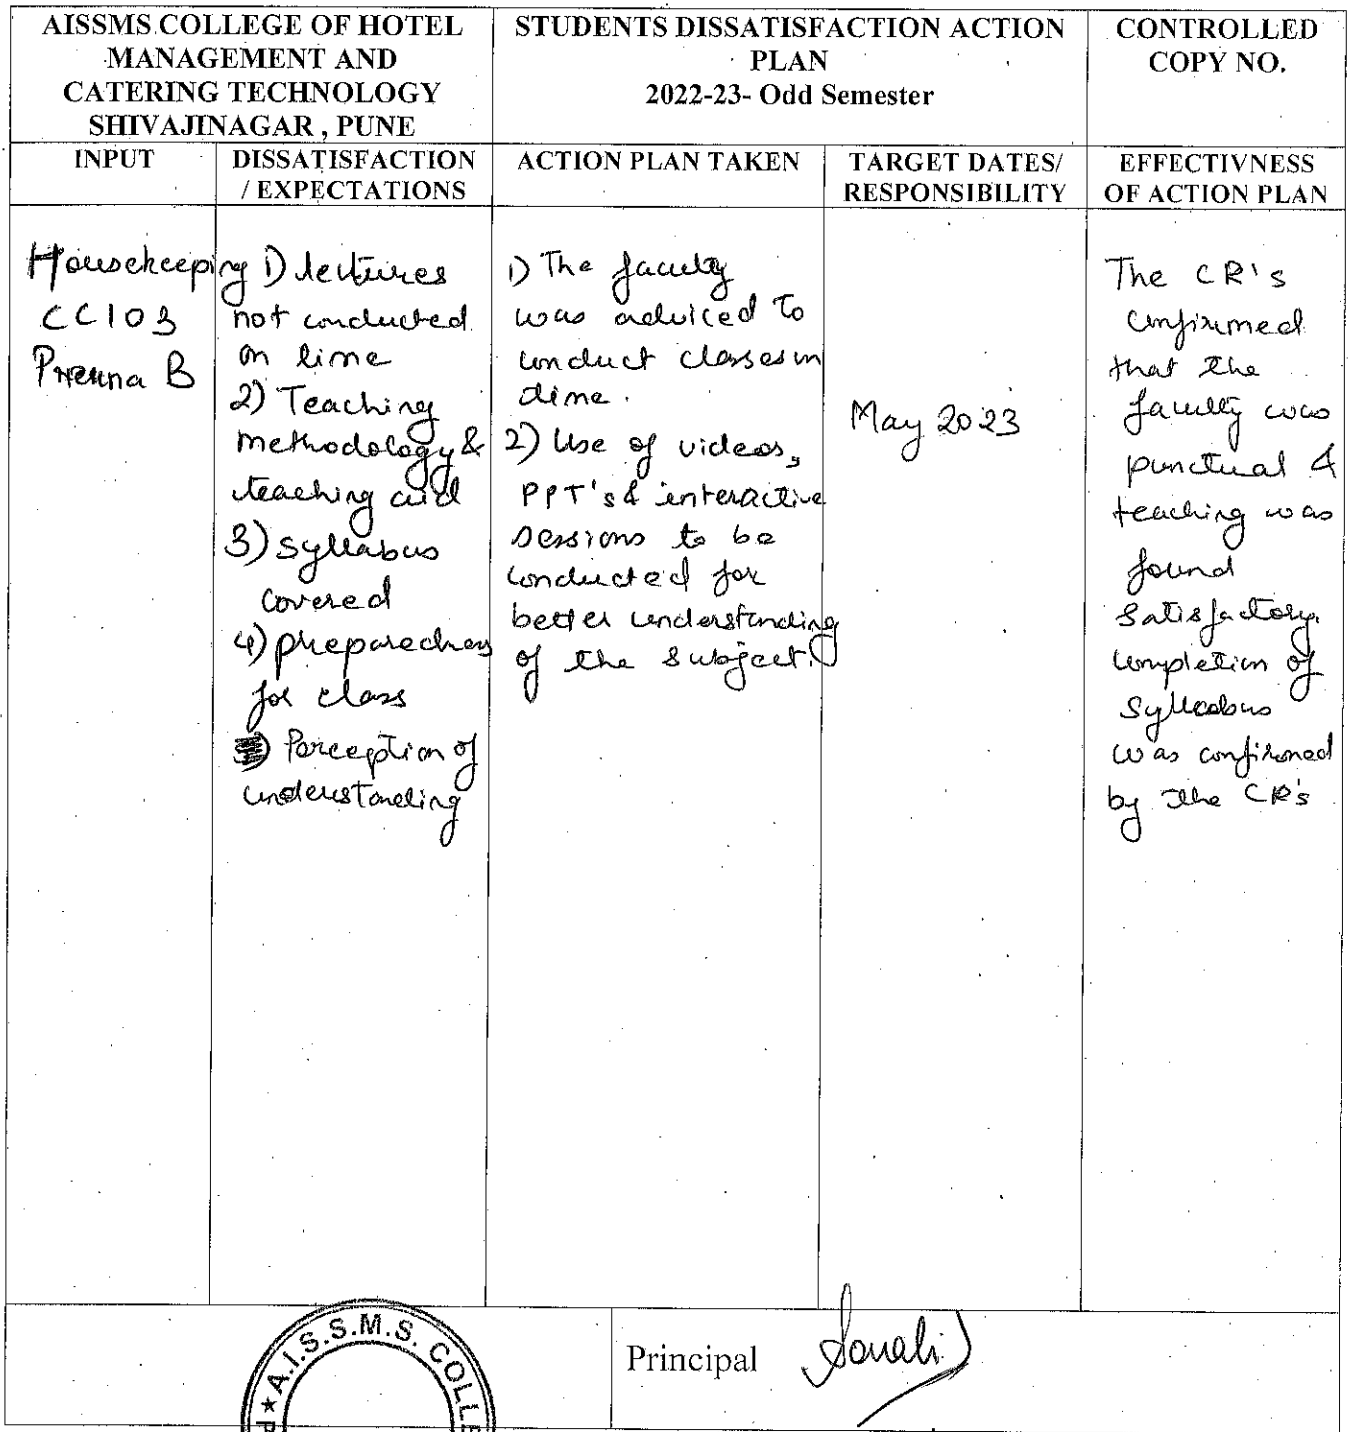 AISSMS COLLEGE OF HOTEL
MANAGEMENT AND
CATERING TECHNOLOGY
SHIVAJINAGAR , PUNE
STUDENTS DISSATISFACTION ACTION
PLAN
2022-23- Odd Semester
CONTROLLED
COPY NO.
INPUT
DISSATISFACTION
/ EXPECTATIONS
ACTION PLAN TAKEN
TARGET DATES/
RESPONSIBILITY
EFFECTIVNESS
OF ACTION PLAN
Housekeeping
CC103
Prerna B
1) lectures
not conducted
on time
2) Teaching
methodology &
teaching aid
3) Syllabus
covered
4) preparedness
for class
Perception of
understanding
1) The faculty
was adviced to
conduct classes in
time.
2) Use of videos,
PPT's & interactive
sessions to be
conducted for
better understanding
of the subject.
May 2023
The CR's
confirmed
that the
faculty was
punctual &
teaching was
found
satisfactory.
completion of
syllabus
was confirmed
by the CR's
A.I.S.S.M.S. COLLE
Principal
Sonali